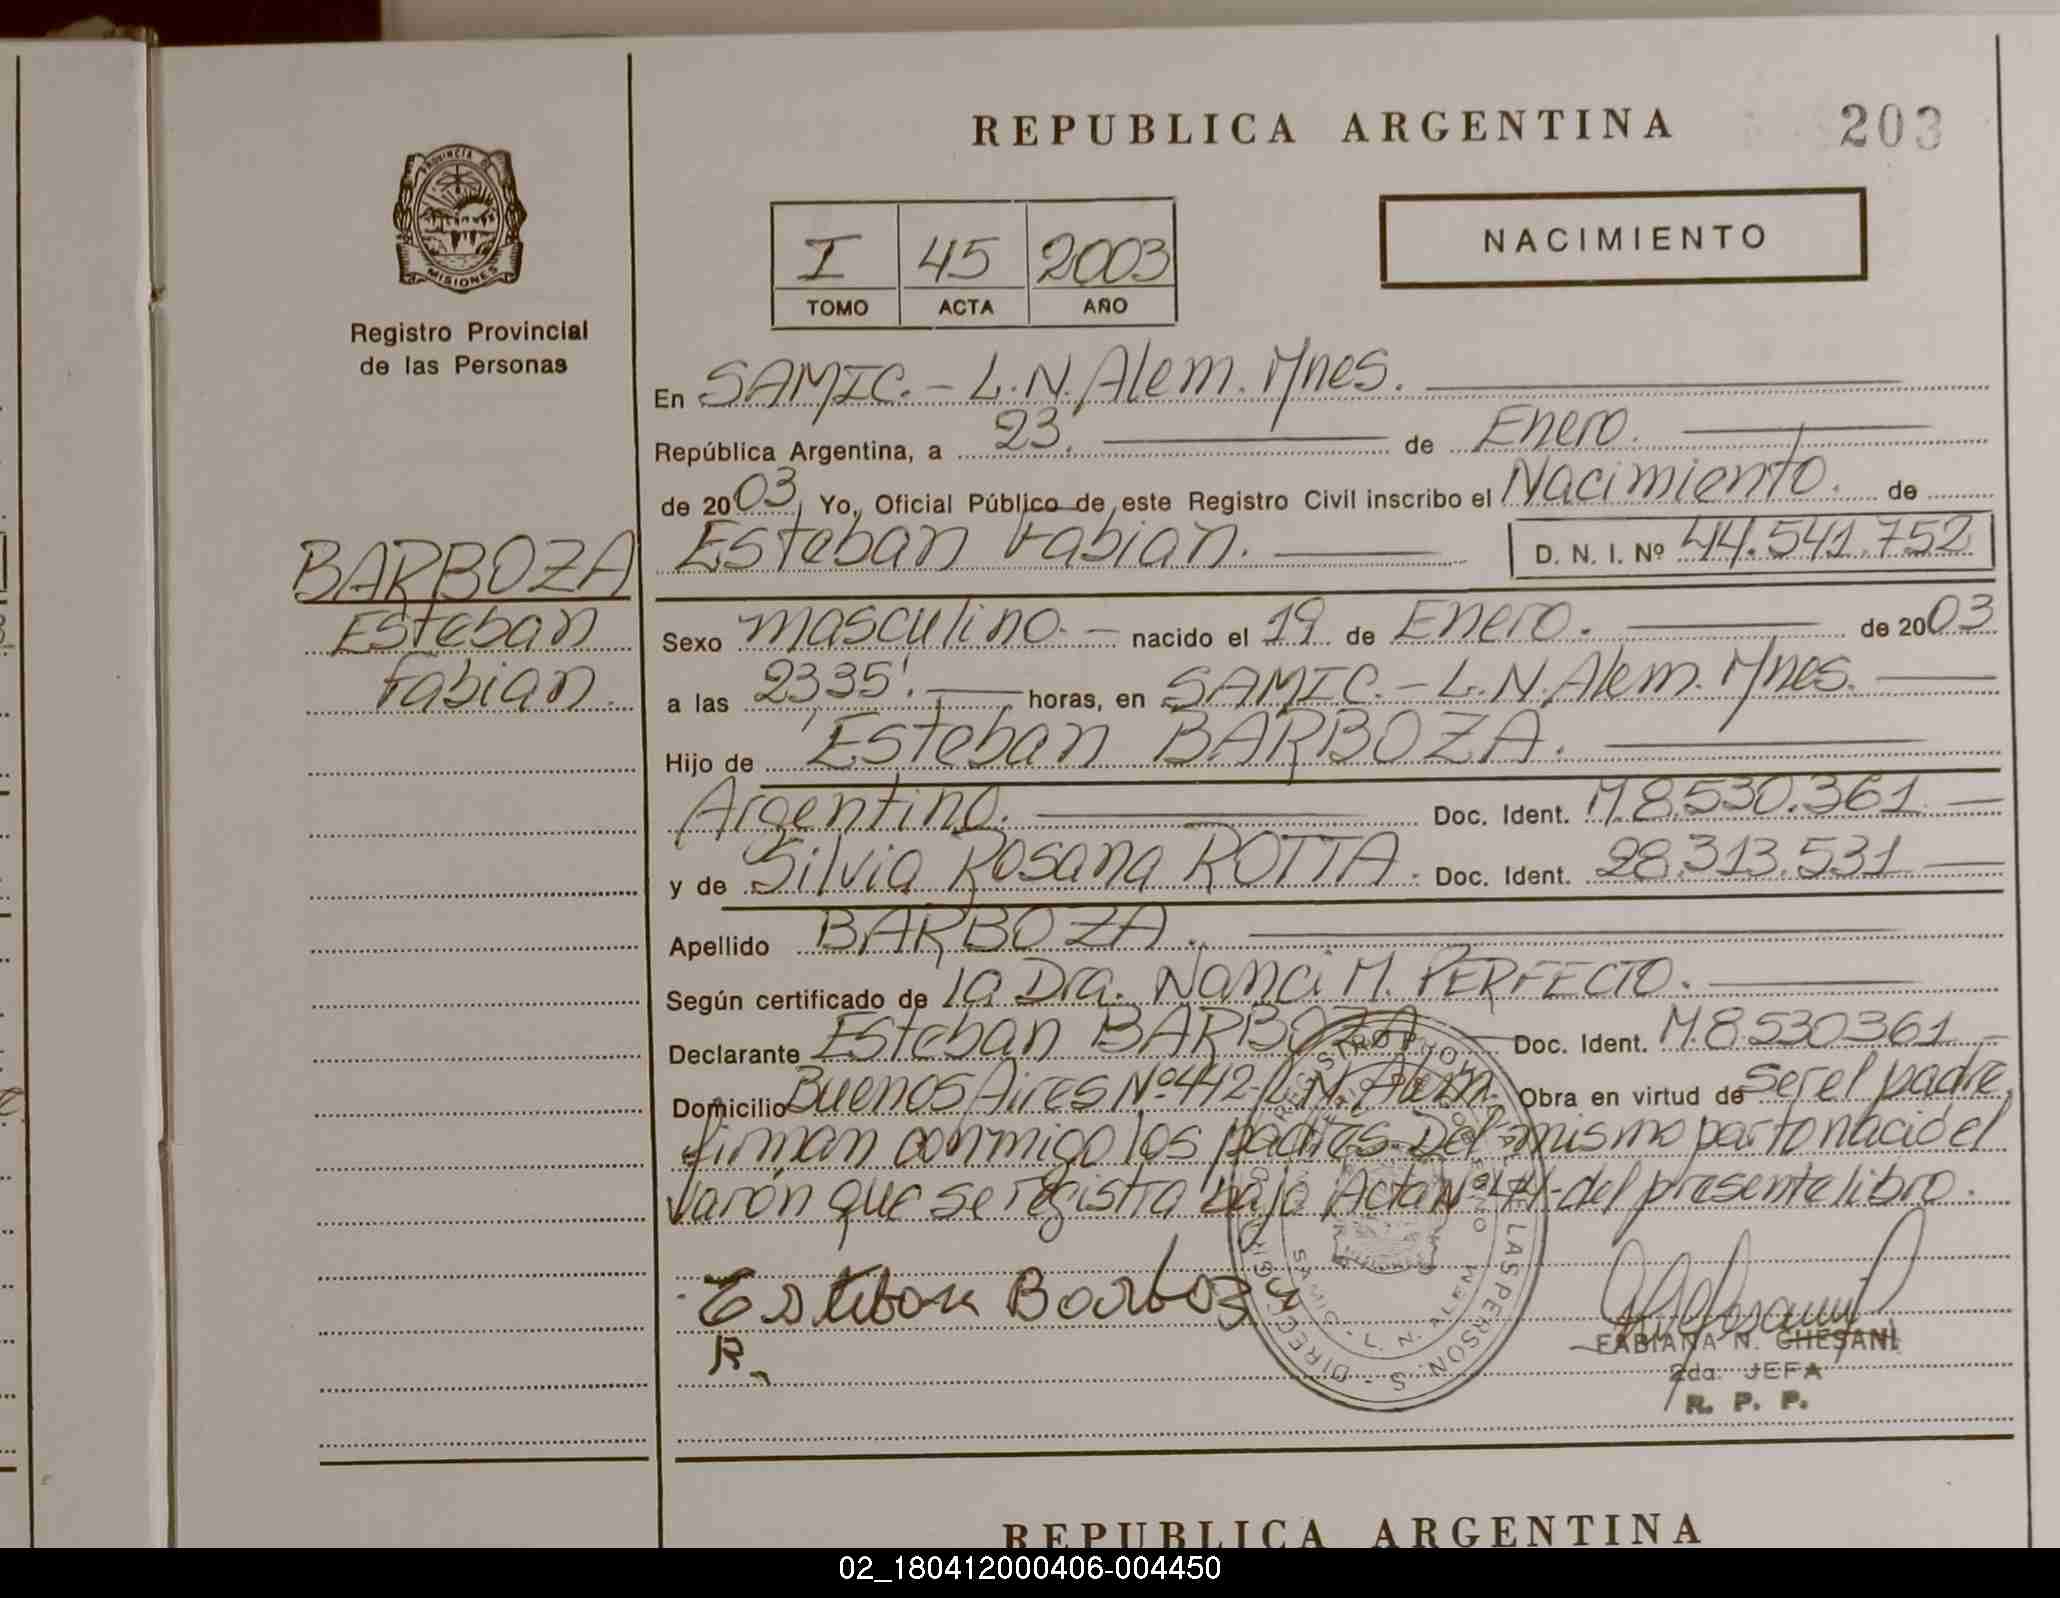 REPUBLICA ARGENTINA
203
PROVINCIA DE
MISIONES
Registro Provincial
de las Personas
NACIMIENTO
I 45 2003
TOMO ACTA AÑO
En SAMIC.- L.N.Alem. Mnes.
República Argentina, a 23. de Enero.
de 2003, Yo, Oficial Público de este Registro Civil inscribo el Nacimiento. de
Esteban Fabian. D. N. I. Nº 44.541.752
BARBOZA
Esteban
Fabian.
Sexo masculino.- nacido el 19 de Enero. de 2003
a las 23,35'. horas, en SAMIC.- L.N.Alem. Mnes.
Hijo de Esteban BARBOZA.
Argentino. Doc. Ident. M.8.530.361
y de Silvia Rosana ROTTA. Doc. Ident. 28.313.531
Apellido BARBOZA.
Según certificado de la Dra. Nanci M. PERFECTO.
Declarante Esteban BARBOZA Doc. Ident. M.8530361
Domicilio Buenos Aires Nº 442-L.N. Alem. Obra en virtud de ser el padre,
firman conmigo los padres. Del mismo parto nació el
varón que se registra bajo Acta Nº 44-del presente libro.
Esteban Barboza
R.
FABIANA N. GHESANI
2da. JEFA
R. P. P.
SAMIC - L. N. ALEM
REPUBLICA ARGENTINA
02_180412000406-004450